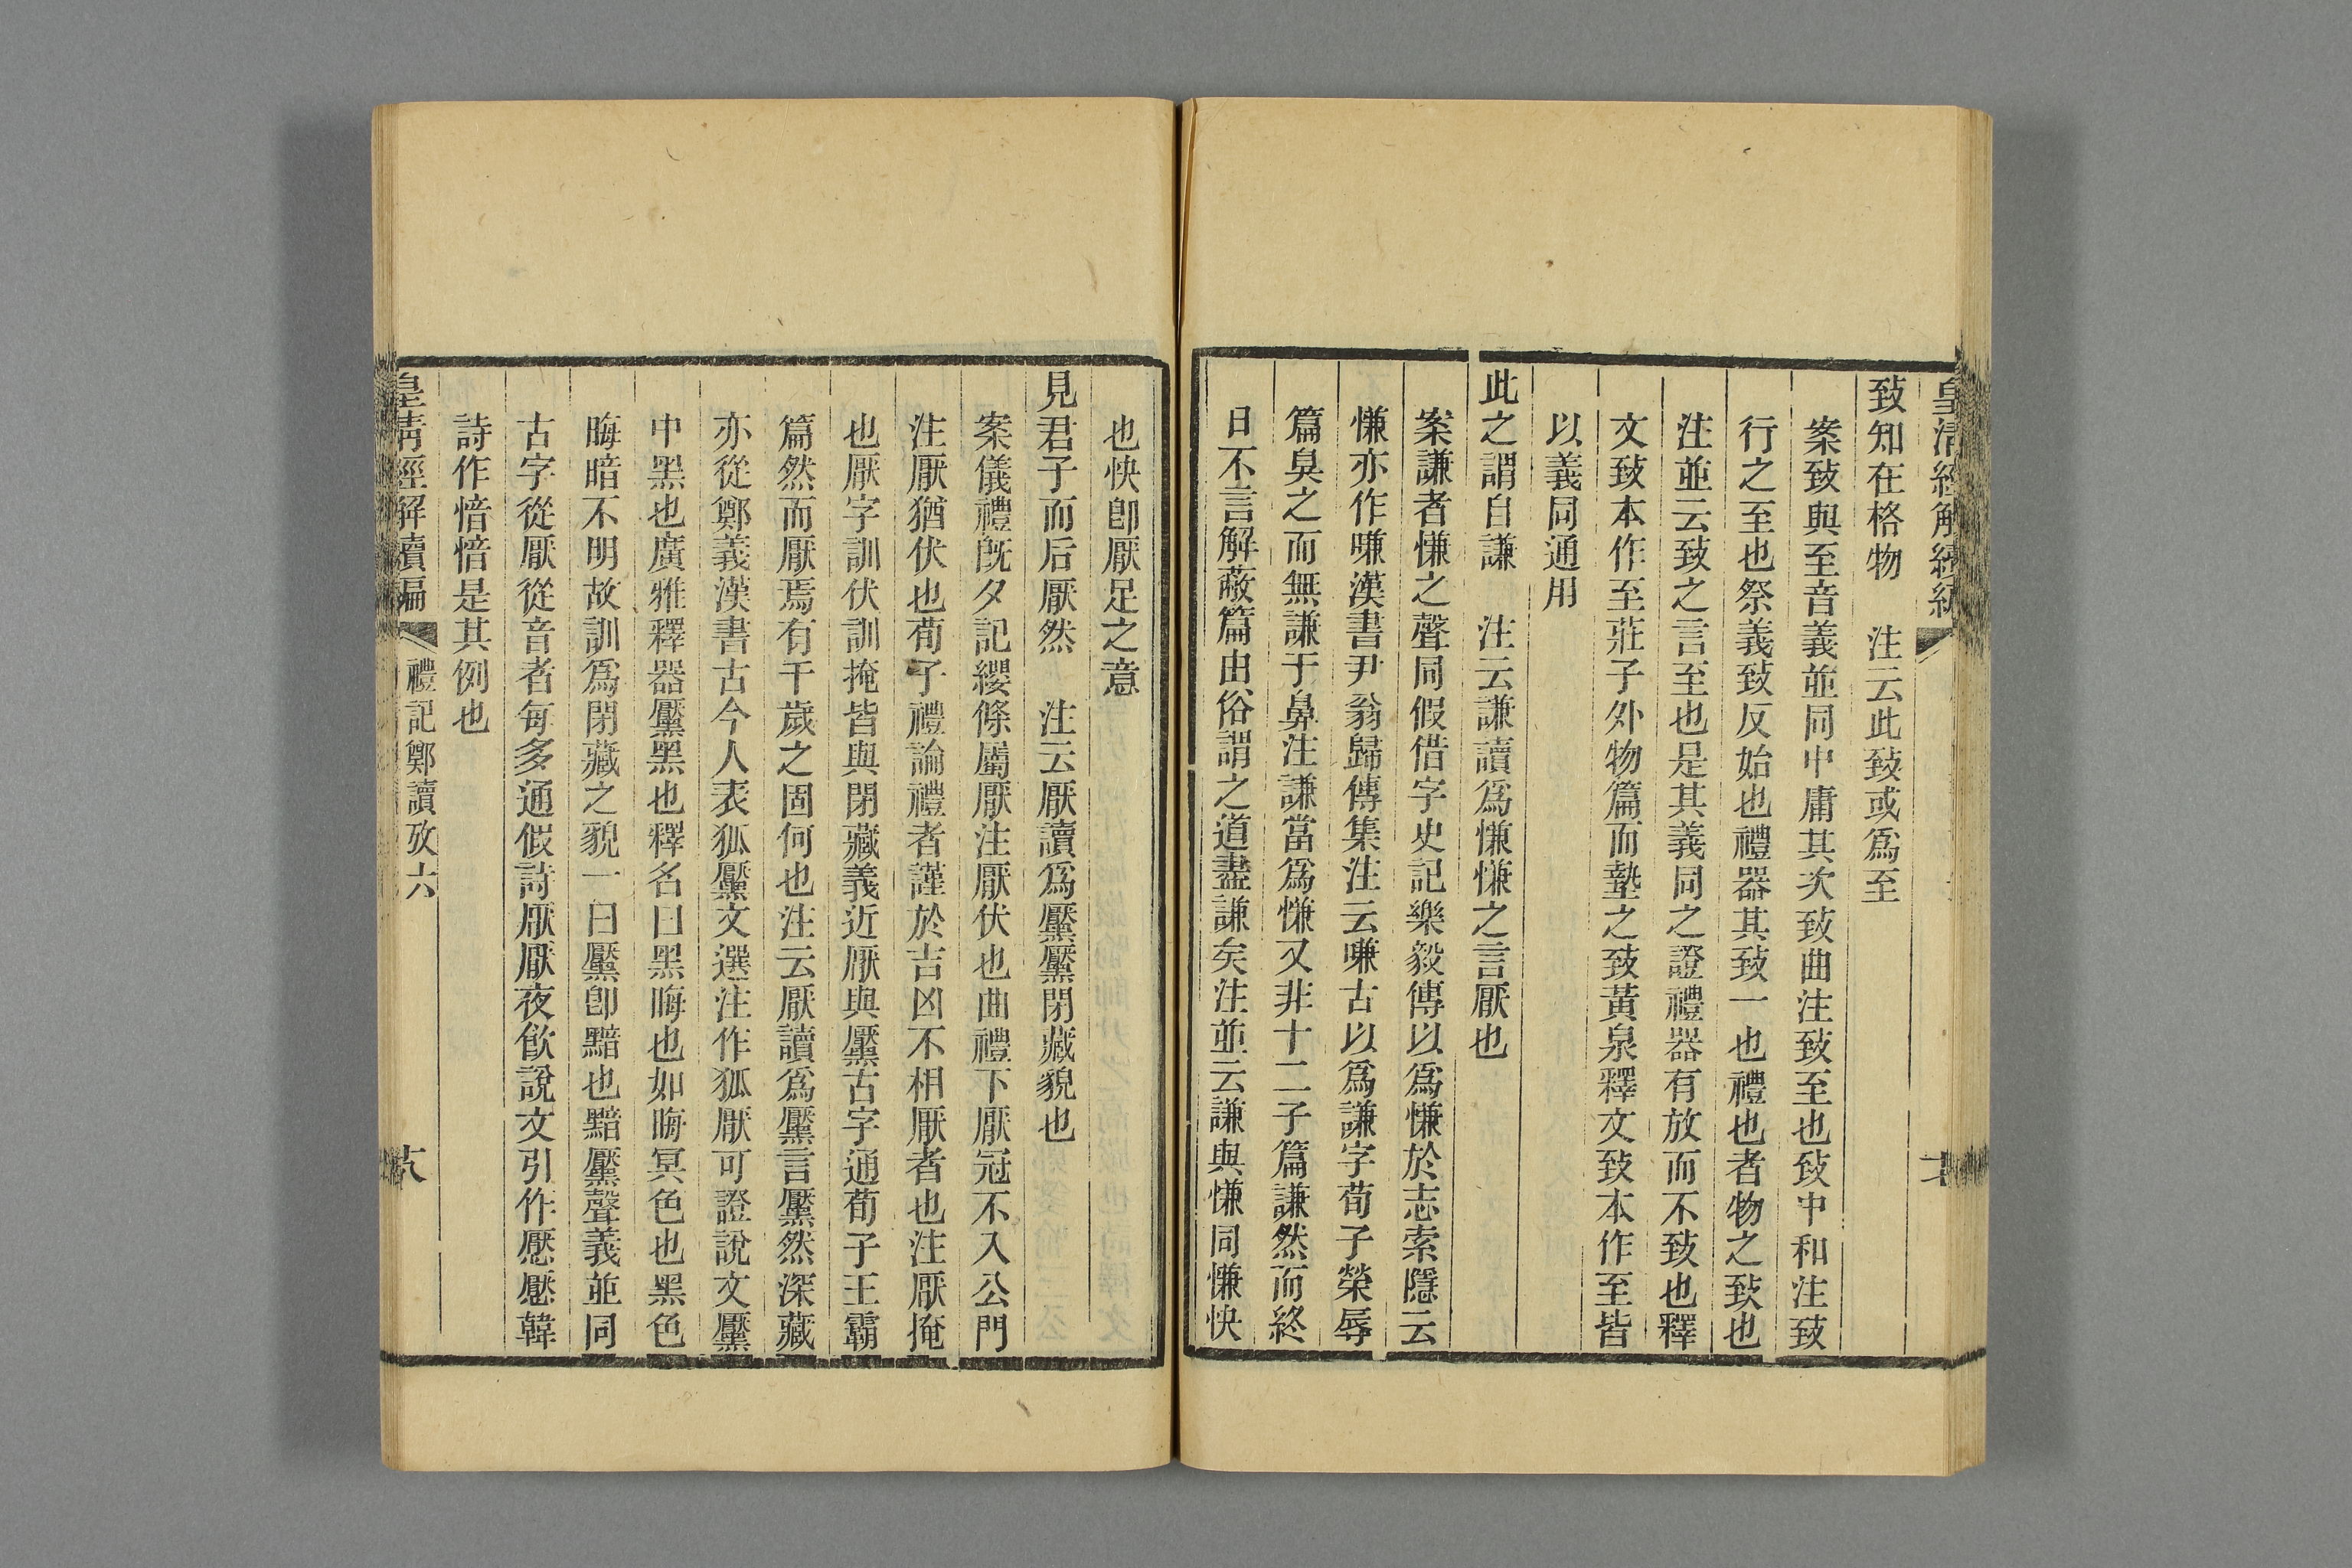 皇清經解續編
致知在格物　注云此致或爲至
案致與至音義並同中庸其次致曲注致至也致中和注致
行之至也祭義致反始也禮器其致一也禮也者物之致也
注並云致之言至也是其義同之證禮器有放而不致也釋
文致本作至莊子外物篇而墊之致黃泉釋文致本作至皆
以義同通用
此之謂自謙　注云謙讀爲慊慊之言厭也
案謙者慊之聲同假借字史記樂毅傳以爲慊於志索隱云
慊亦作嗛漢書尹翁歸傳集注云嗛古以爲謙字荀子榮辱
篇臭之而無謙于鼻注謙當爲慊又非十二子篇謙然而終
日不言解蔽篇由俗謂之道盡謙矣注並云謙與慊同慊快
也快卽厭足之意
見君子而后厭然　注云厭讀爲黶黶閉藏貌也
案儀禮旣夕記纓條屬厭注厭伏也曲禮下厭冠不入公門
注厭猶伏也荀子禮論禮者謹於吉凶不相厭者也注厭掩
也厭字訓伏訓掩皆與閉藏義近厭與黶古字通荀子王霸
篇然而厭焉有千歲之固何也注云厭讀爲黶言黶然深藏
亦從鄭義漢書古今人表狐黶文選注作狐厭可證說文黶
中黑也廣雅釋器黶黑也釋名曰黑晦也如晦冥色也黑色
晦暗不明故訓爲閉藏之貌一曰黶卽黯也黯黶聲義並同
古字從厭從音者每多通假詩厭厭夜飲說文引作懕懕韓
詩作愔愔是其例也
皇清經解續編　禮記鄭讀攷六